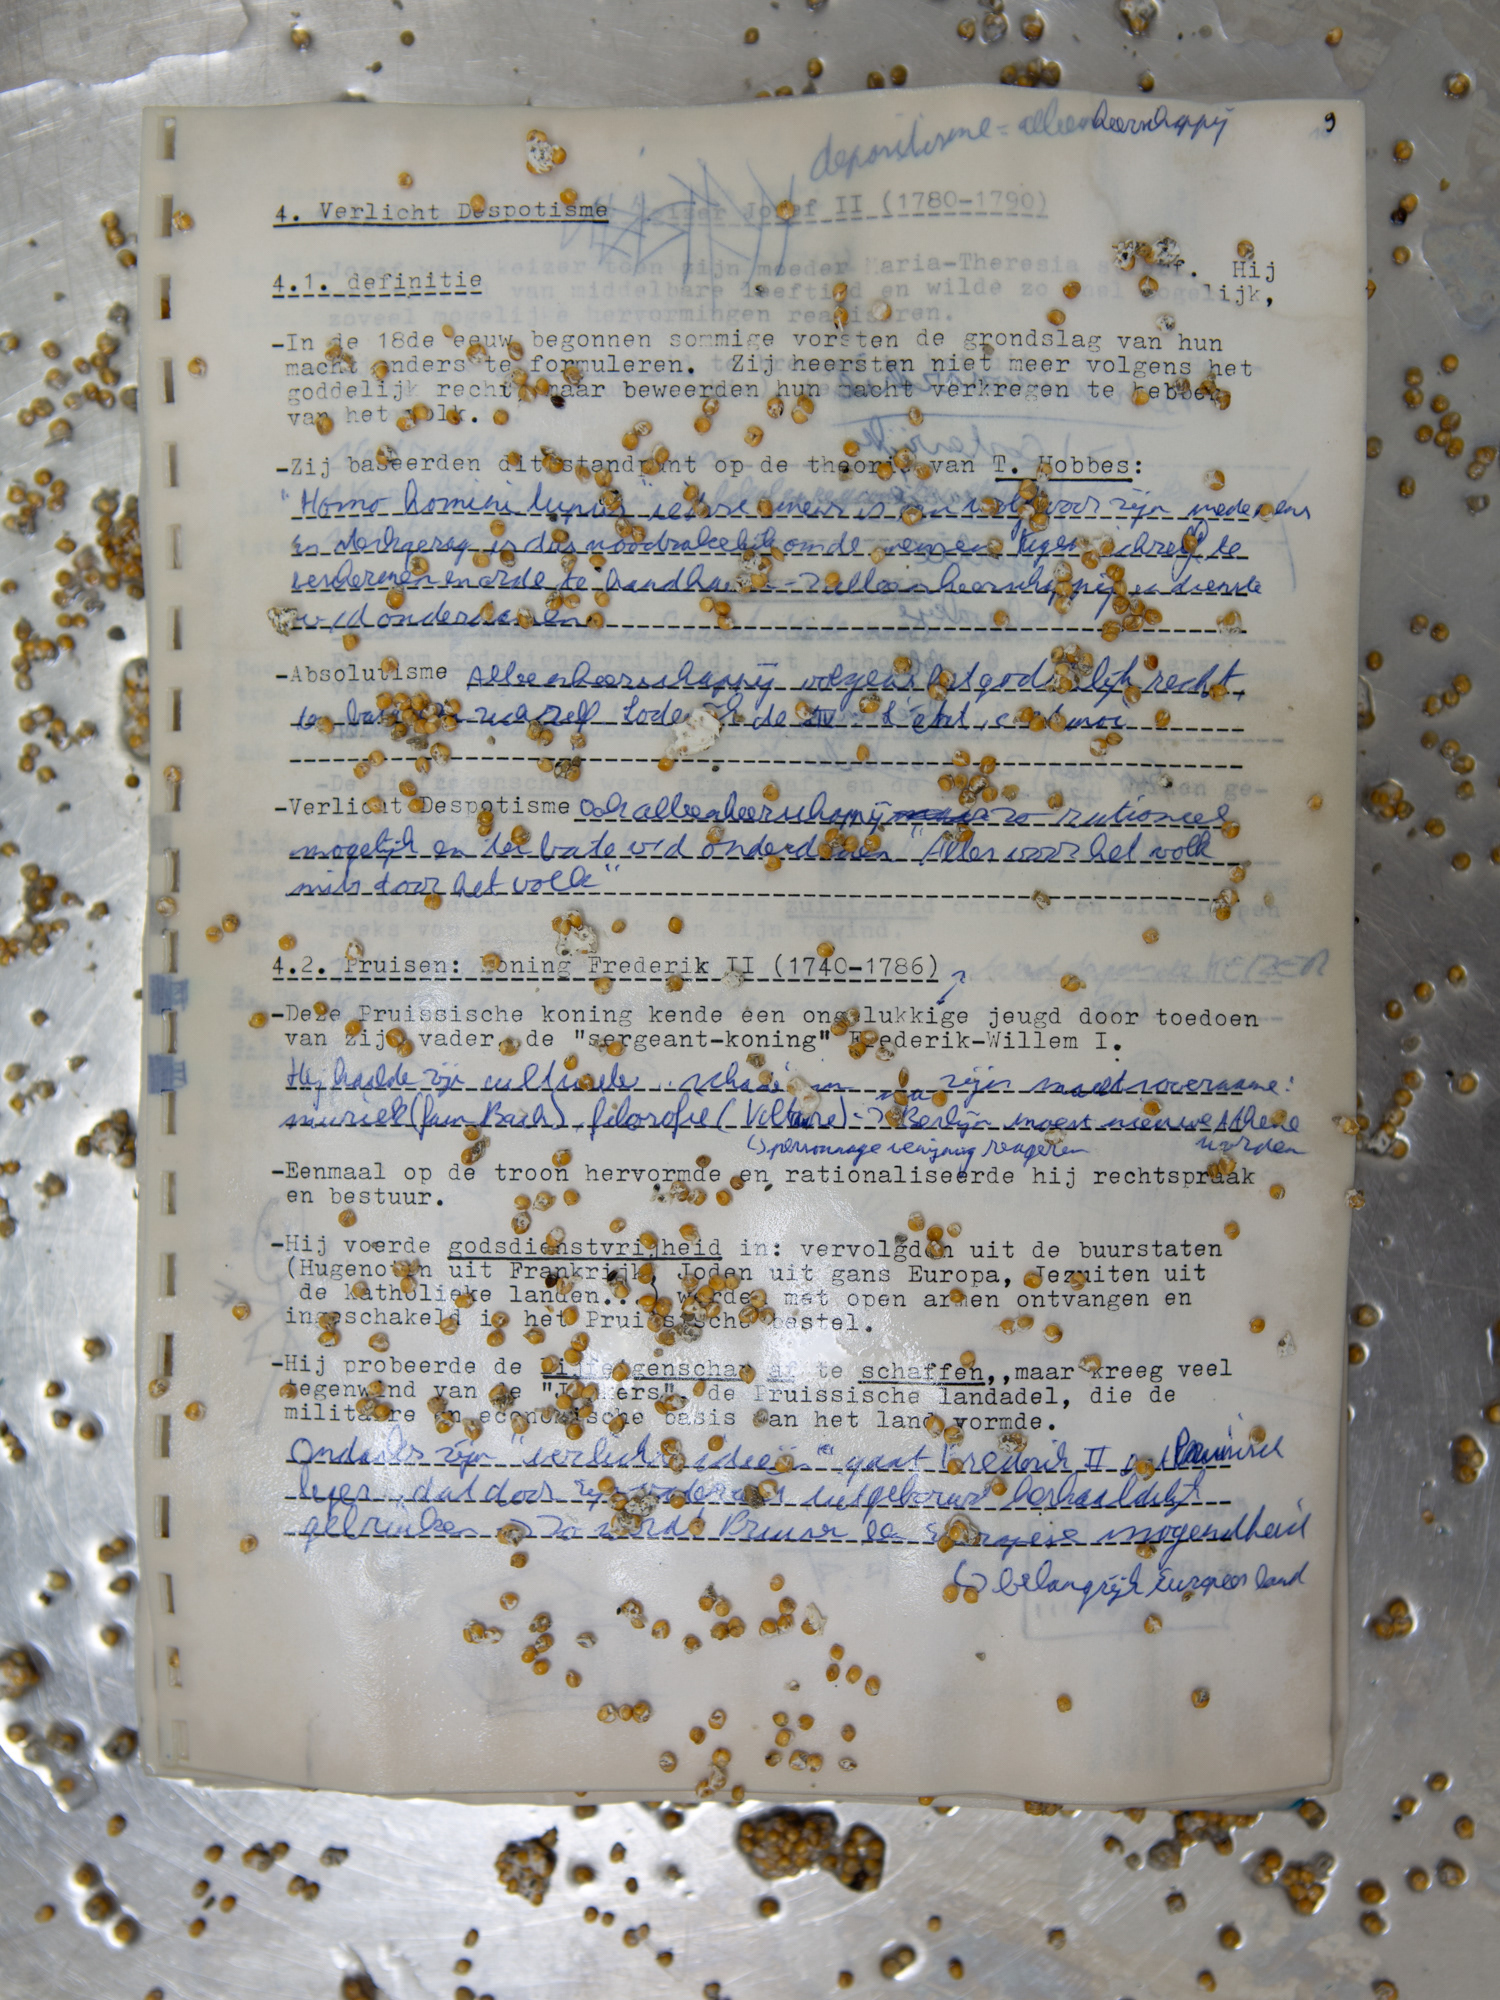 9
= alleenheerschappij
4. Verlicht Despotisme
Keizer Jozef II (1780-1790)
Maria-Theresia Hij
4.1. definitie
van middelbare leeftijd en wilde lijk,
zoveel mogelijke hervormingen realiseren.
-In de 18de eeuw begonnen sommige vorsten de grondslag van hun
macht anders te formuleren. Zij heersten niet meer volgens het
goddelijk recht maar beweerden hun macht verkregen te hebben
van het volk.
-Zij baseerden dit standpunt op de theorie van T. Hobbes:
"Homo homini lupus" iedere mens is een wolf voor zijn medemens
en gezag is dus noodzakelijk om de mensen tegen te
beschermen en orde te handhaven -> alleenheerschappij in dienste
v/d onderdanen
-Absolutisme Alleenheerschappij volgens het goddelijk recht,
te zichzelf Lodewijk de XIV: L'état, c'est moi
-Verlicht Despotisme Ook alleenheerschappij zo rationeel
mogelijk en ten bate v/d onderdanen "Alles voor het volk
niets door het volk"
4.2. Pruisen: koning Frederik II (1740-1786)
-Deze Pruissische koning kende een ongelukkige jeugd door toedoen
van zijn vader, de "sergeant-koning" Frederik-Willem I.
Hij haalde zijn culturele schade in na zijn machtsovername:
muziek (van Bach), filosofie (Voltaire) -> Berlijn moest nieuwe Athene
worden
-Eenmaal op de troon hervormde en rationaliseerde hij rechtspraak
en bestuur.
-Hij voerde godsdienstvrijheid in: vervolgden uit de buurstaten
(Hugenoten uit Frankrijk, Joden uit gans Europa, Jezuiten uit
de katholieke landen...) werden met open armen ontvangen en
ingeschakeld in het Pruissische bestel.
-Hij probeerde de lijfeigenschap af te schaffen,,maar kreeg veel
tegenwind van de "Junkers", de Pruissische landadel, die de
militaire en economische basis van het land vormde.
Ondanks zijn "verlichte ideeën" gaat Frederik II het Pruisisch
leger, dat door zijn vader was uitgebouwd herhaaldelijk
gebruiken -> Zo wordt Pruisen een Europese mogendheid
belangrijk Europees land